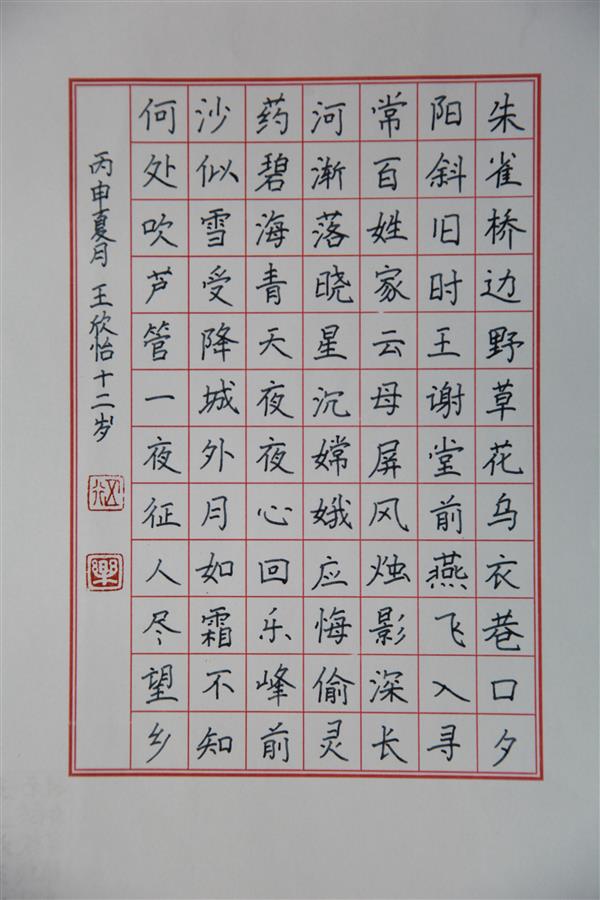 朱雀桥边野草花乌衣巷口夕
阳斜旧时王谢堂前燕飞入寻
常百姓家云母屏风烛影深长
河渐落晓星沉嫦娥应悔偷灵
药碧海青天夜夜心回乐峰前
沙似雪受降城外月如霜不知
何处吹芦管一夜征人尽望乡
丙申夏月 王欣怡十二岁